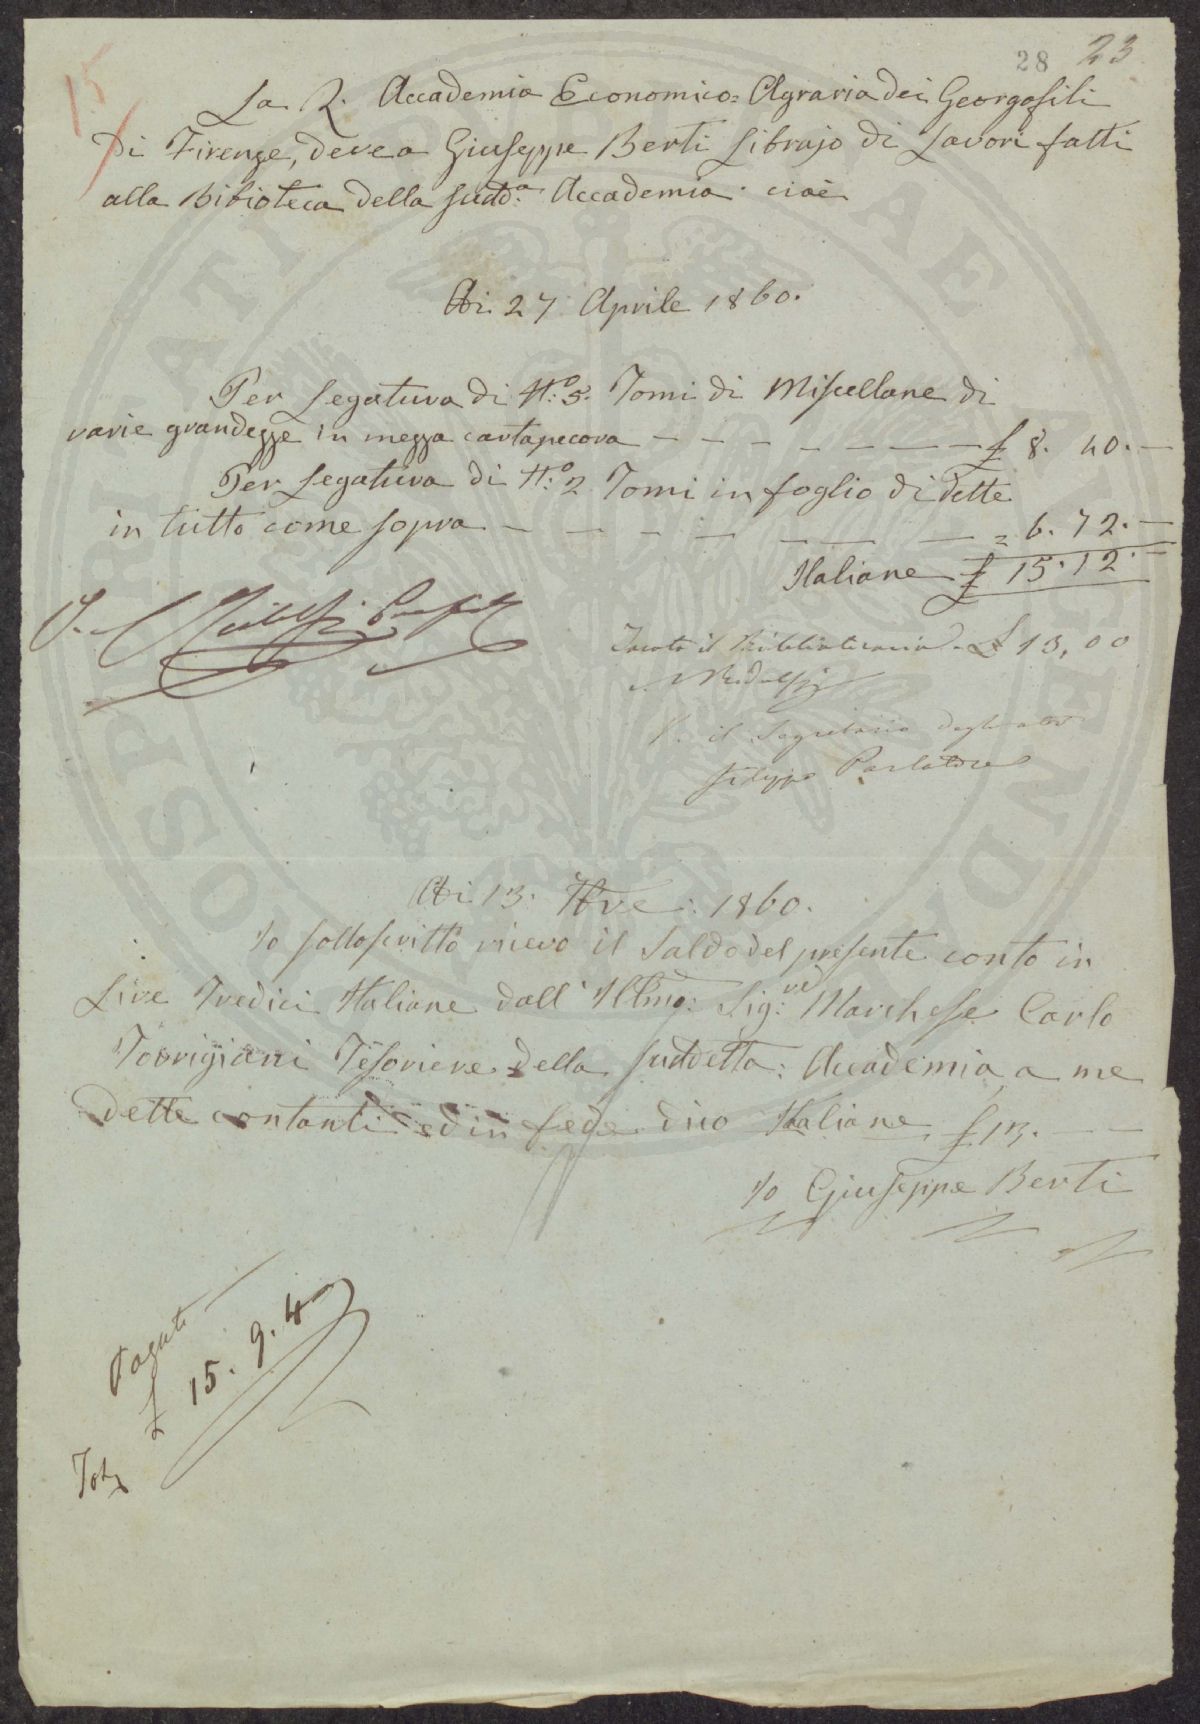 28 23
15
La R. Accademia Economico=Agraria dei Georgofili
Di Firenze, deve a Giuseppe Berti Librajo di Lavori fatti
alla Bibioteca della Sudd.a Accademia. cioè
Adi. 27 Aprile 1860.
Per Legatura di N.o 5. Tomi di Miscellane di
varie grandezze in mezza cartapecora — — — — — — — £ 8. 40. —
Per Legatura di N.o 2 Tomi in foglio di dette
in tutto come sopra — — — — — — — = 6. 72. —
Italiane £ 15. 12. —
V.
il Bibliotecario £ 13,00
Ridolfi
V. il Segretario degli atti
Filippo Parlatore
Adi. 13. 1860.
Io sottoscritto ricevo il Saldo del presente conto in
Lire Tredici Italiane dall' Illmo: Sig.re Marchese Carlo
Torrigiani Tesoriere della suddetta: Accademia, a me
dette contanti ed in fede dico Italiane £ 13. — —
Io Giuseppe Berti
Pagato
£ 15. 9. 4